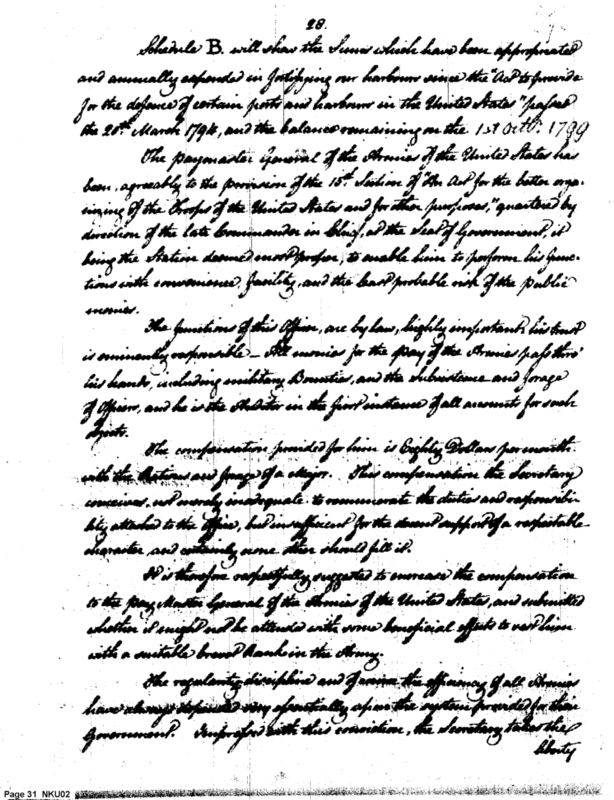 28.
Schedule B. will show the Sums which have been appropriated
and annually expended in fortifying our harbours since the "Act to provide
for the defence of certain ports and harbours in the United States" passed
the 20th March 1794, and the balance remaining on the 1st Octr. 1799
The paymaster General of the Armies of the United States has
been, agreeably to the provision of the 15th Section of "An Act for the better orga-
nizing of the Troops of the United States and for other purposes," quartered by
direction of the late Commander in Chief, at the Seat of Government, it
being the Station deemed most proper, to enable him to perform his func-
tions with convenience, facility, and the least probable risk of the public
monies.
The functions of this Officer, are by law, highly important, his trust
is eminently responsible — All monies for the pay of the Armies pass thro'
his hands, including military Bounties, and the Subsistence and forage
of Officers, and he is the Auditor in the first instance of all accounts for such
objects.
The compensation provided for him is Eighty Dollars per month
with the Rations and forage of a Major. This compensation the Secretary
conceives, not merely inadequate to remunerate the duties and responsibi-
lity attached to the Office, but insufficient for the decent support of a respectable
character and certainly none other should fill it.
It is therefore respectfully suggested to increase the compensation
to the pay Master General of the Armies of the United States, and submitted
whether it might not be attended with some beneficial effects to vest him
with a suitable brevet Rank in the Army.
The regularity, discipline and the efficiency of all Armies
have always depended very essentially upon the system provided for their
Government. Impressed with this conviction, the Secretary takes the
liberty
Page 31 NKU02